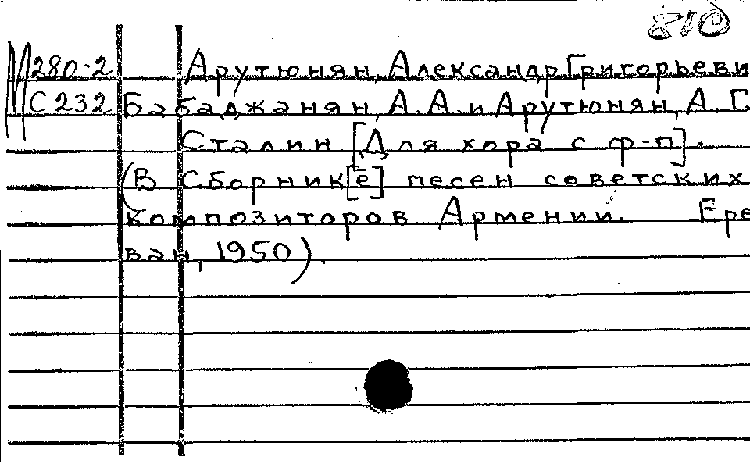 810
М280-2 Арутюнян, Александр Григорьеви
С232 Бабаджанян, А.А. и Арутюнян, А. Г
Сталин [Для хора с ф-п].
(В Сборник[е] песен советских
композиторов Армении. Ере
ван, 1950).